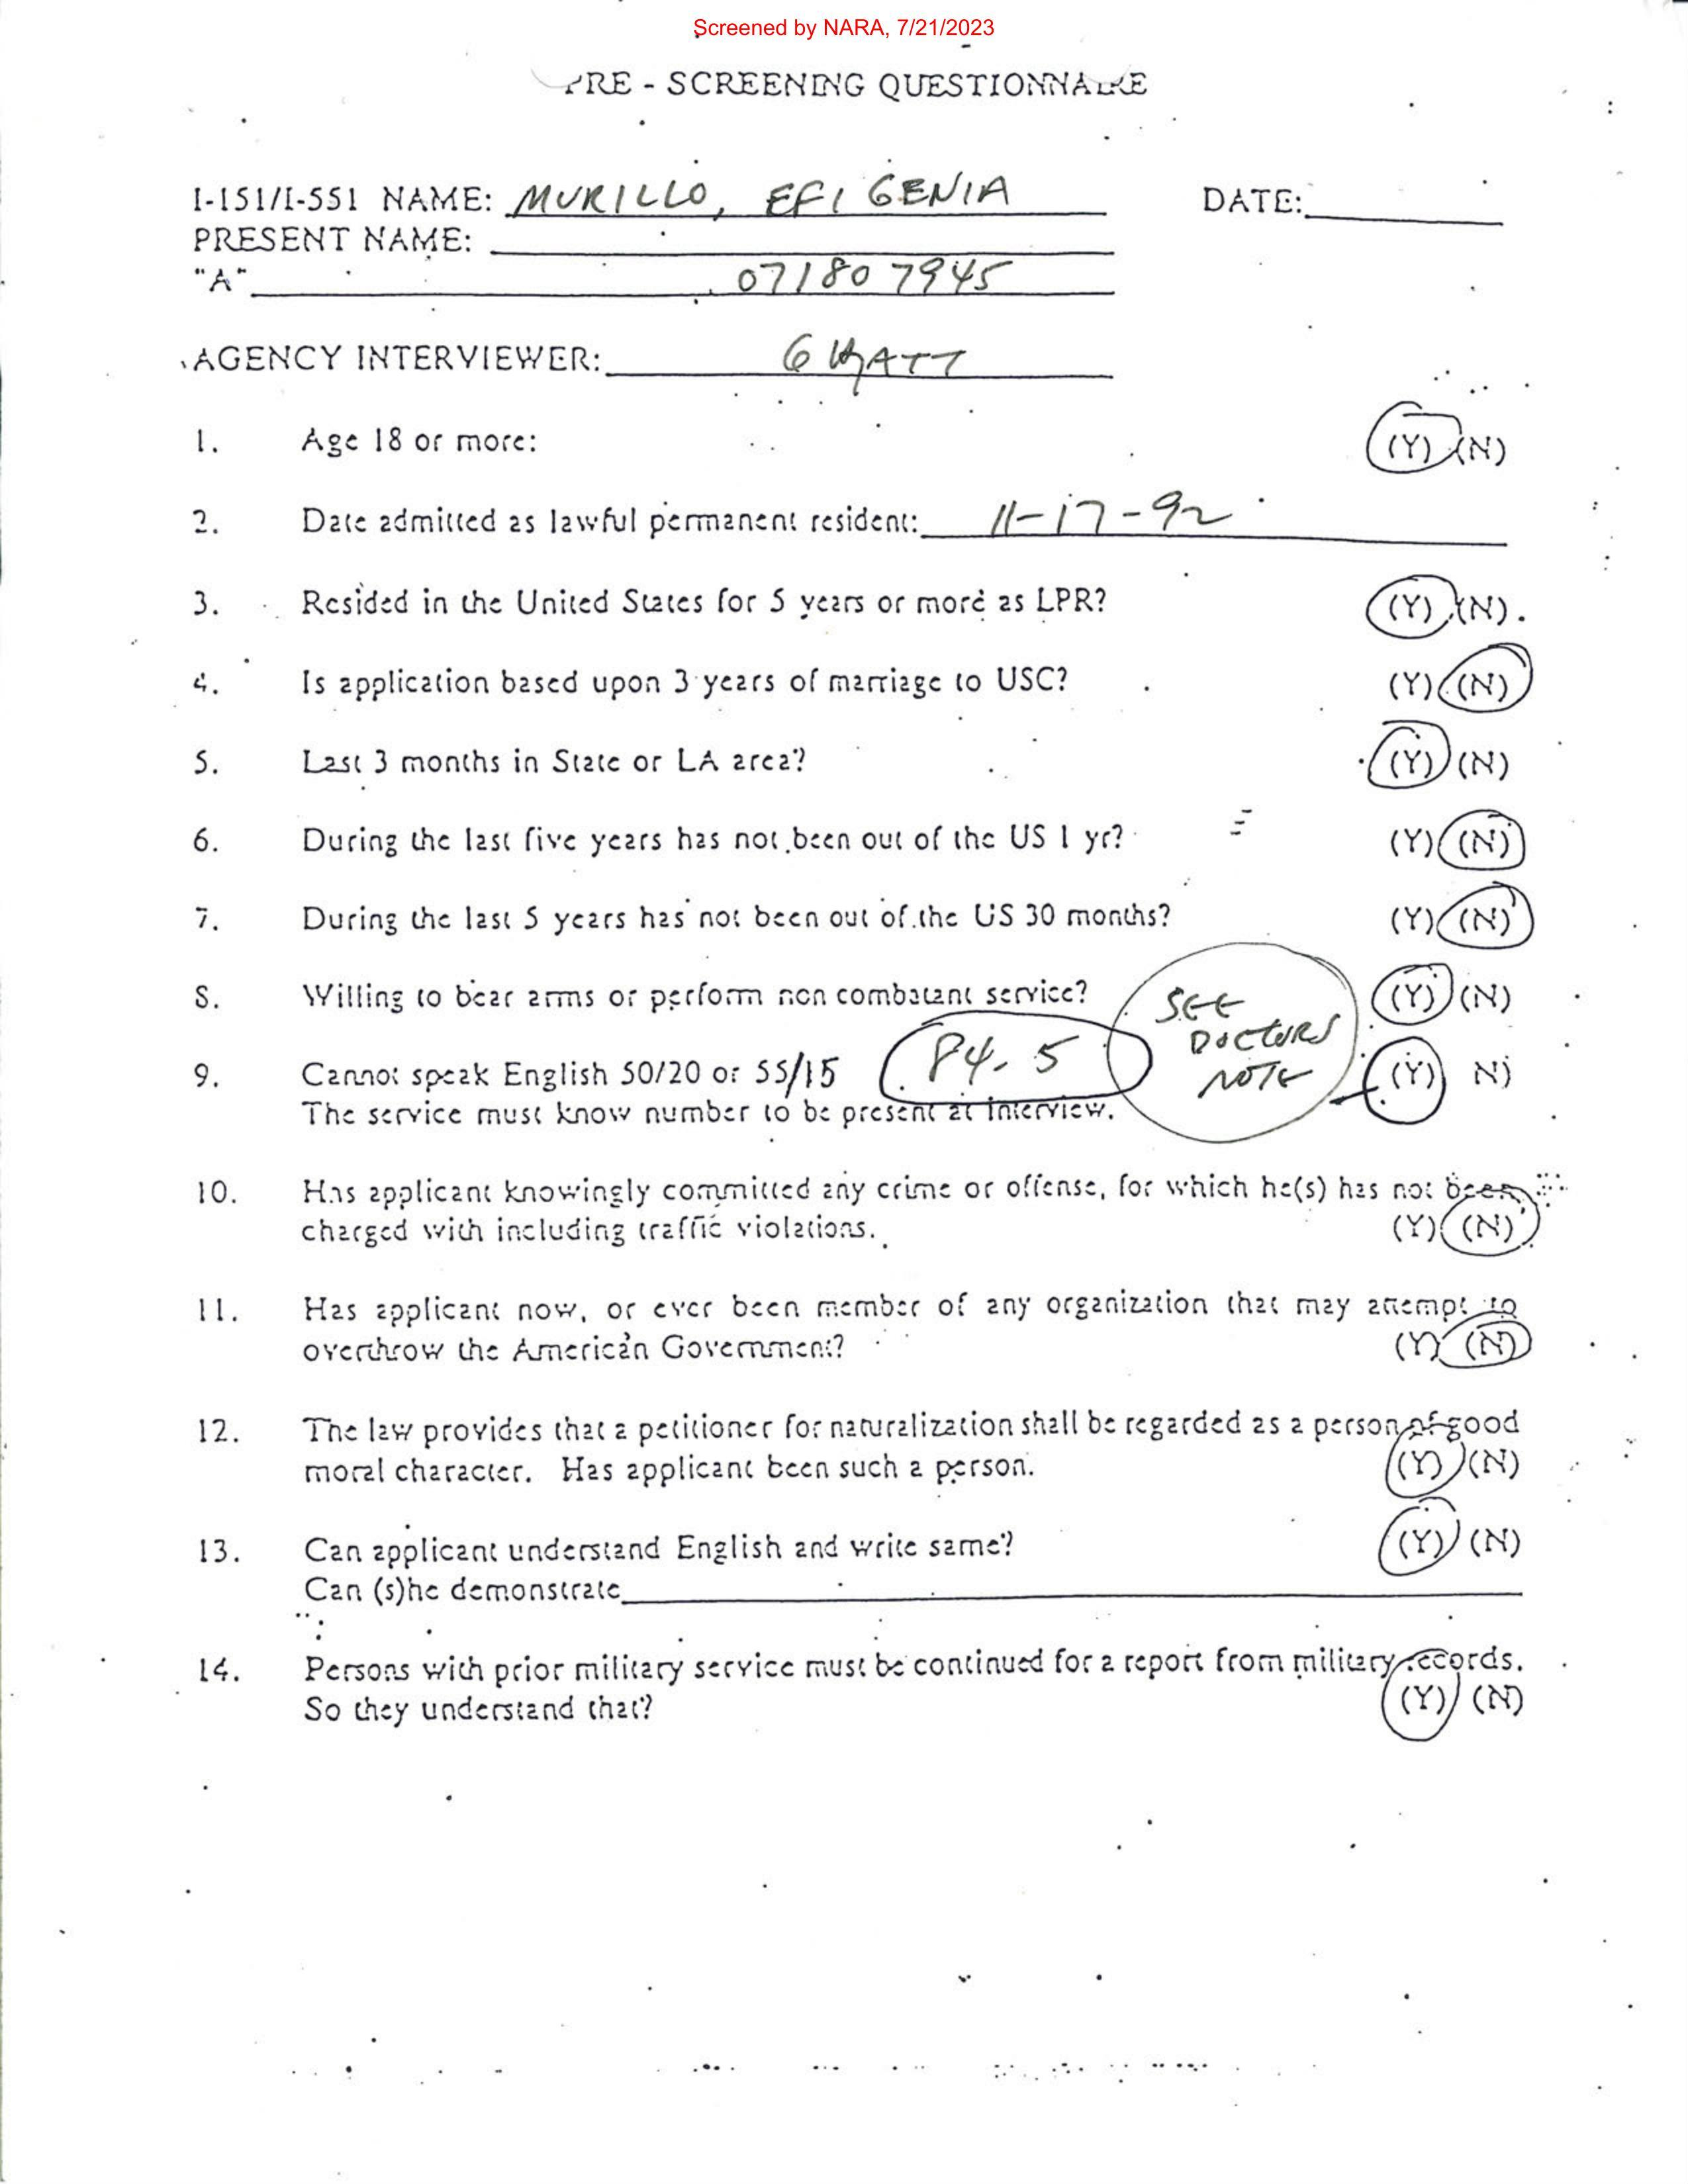 Screened by NARA, 7/21/2023
PRE - SCREENING QUESTIONNAIRE
I-151/I-551 NAME: MURILLO, EFIGENIA DATE:
PRESENT NAME:
"A" 071807945
AGENCY INTERVIEWER:
1. Age 18 or more: (Y) (N)
2. Date admitted as lawful permanent resident: 11-17-92
3. Resided in the United States for 5 years or more as LPR? (Y) (N).
4. Is application based upon 3 years of marriage to USC? (Y) (N)
5. Last 3 months in State or LA area? (Y) (N)
6. During the last five years has not been out of the US 1 yr? (Y) (N)
7. During the last 5 years has not been out of the US 30 months? (Y) (N)
8. Willing to bear arms or perform non combatant service? (Y) (N)
SEE
DOCTORS
NOTE
9. Cannot speak English 50/20 or 55/15 P4. 5 (Y) N)
The service must know number to be present at interview.
10. Has applicant knowingly committed any crime or offense, for which he(s) has not been
charged with including traffic violations. (Y) (N)
11. Has applicant now, or ever been member of any organization that may attempt to
overthrow the American Government? (Y) (N)
12. The law provides that a petitioner for naturalization shall be regarded as a person of good
moral character. Has applicant been such a person. (Y) (N)
13. Can applicant understand English and write same? (Y) (N)
Can (s)he demonstrate
14. Persons with prior military service must be continued for a report from military records.
So they understand that? (Y) (N)